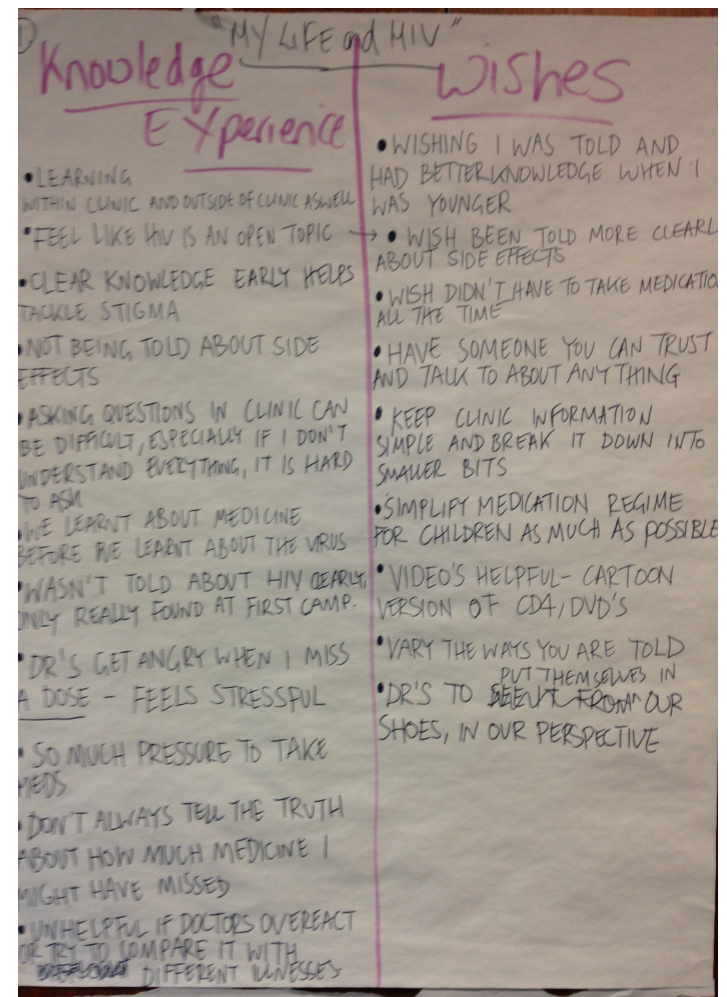 "MY LIFE and HIV"
Knowledge
EXperience
• LEARNING
WITHIN CLINIC AND OUTSIDE OF CLINIC ASWELL
• FEEL LIKE HIV IS AN OPEN TOPIC
• CLEAR KNOWLEDGE EARLY HELPS
TACKLE STIGMA
• NOT BEING TOLD ABOUT SIDE
EFFECTS
• ASKING QUESTIONS IN CLINIC CAN
BE DIFFICULT, ESPECIALLY IF I DON'T
UNDERSTAND EVERYTHING, IT IS HARD
TO ASK
• WE LEARNT ABOUT MEDICINE
BEFORE WE LEARNT ABOUT THE VIRUS
• WASN'T TOLD ABOUT HIV CLEARLY,
ONLY REALLY FOUND AT FIRST CAMP.
• DR'S GET ANGRY WHEN I MISS
A DOSE – FEELS STRESSFUL
• SO MUCH PRESSURE TO TAKE
MEDS
• DON'T ALWAYS TELL THE TRUTH
ABOUT HOW MUCH MEDICINE I
MIGHT HAVE MISSED
• UNHELPFUL IF DOCTORS OVEREACT
OR TRY TO COMPARE IT WITH
DIFFERENT ILLNESSES
Wishes
• WISHING I WAS TOLD AND
HAD BETTER KNOWLEDGE WHEN I
WAS YOUNGER
→ • WISH BEEN TOLD MORE CLEARL
ABOUT SIDE EFFECTS
• WISH DIDN'T HAVE TO TAKE MEDICATIO
ALL THE TIME
• HAVE SOMEONE YOU CAN TRUST
AND TALK TO ABOUT ANYTHING
• KEEP CLINIC INFORMATION
SIMPLE AND BREAK IT DOWN INTO
SMALLER BITS
• SIMPLIFY MEDICATION REGIME
FOR CHILDREN AS MUCH AS POSSIBLE
• VIDEO'S HELPFUL – CARTOON
VERSION OF CD4/DVD'S
• VARY THE WAYS YOU ARE TOLD
PUT THEMSELVES IN
• DR'S TO OUR
SHOES, IN OUR PERSPECTIVE